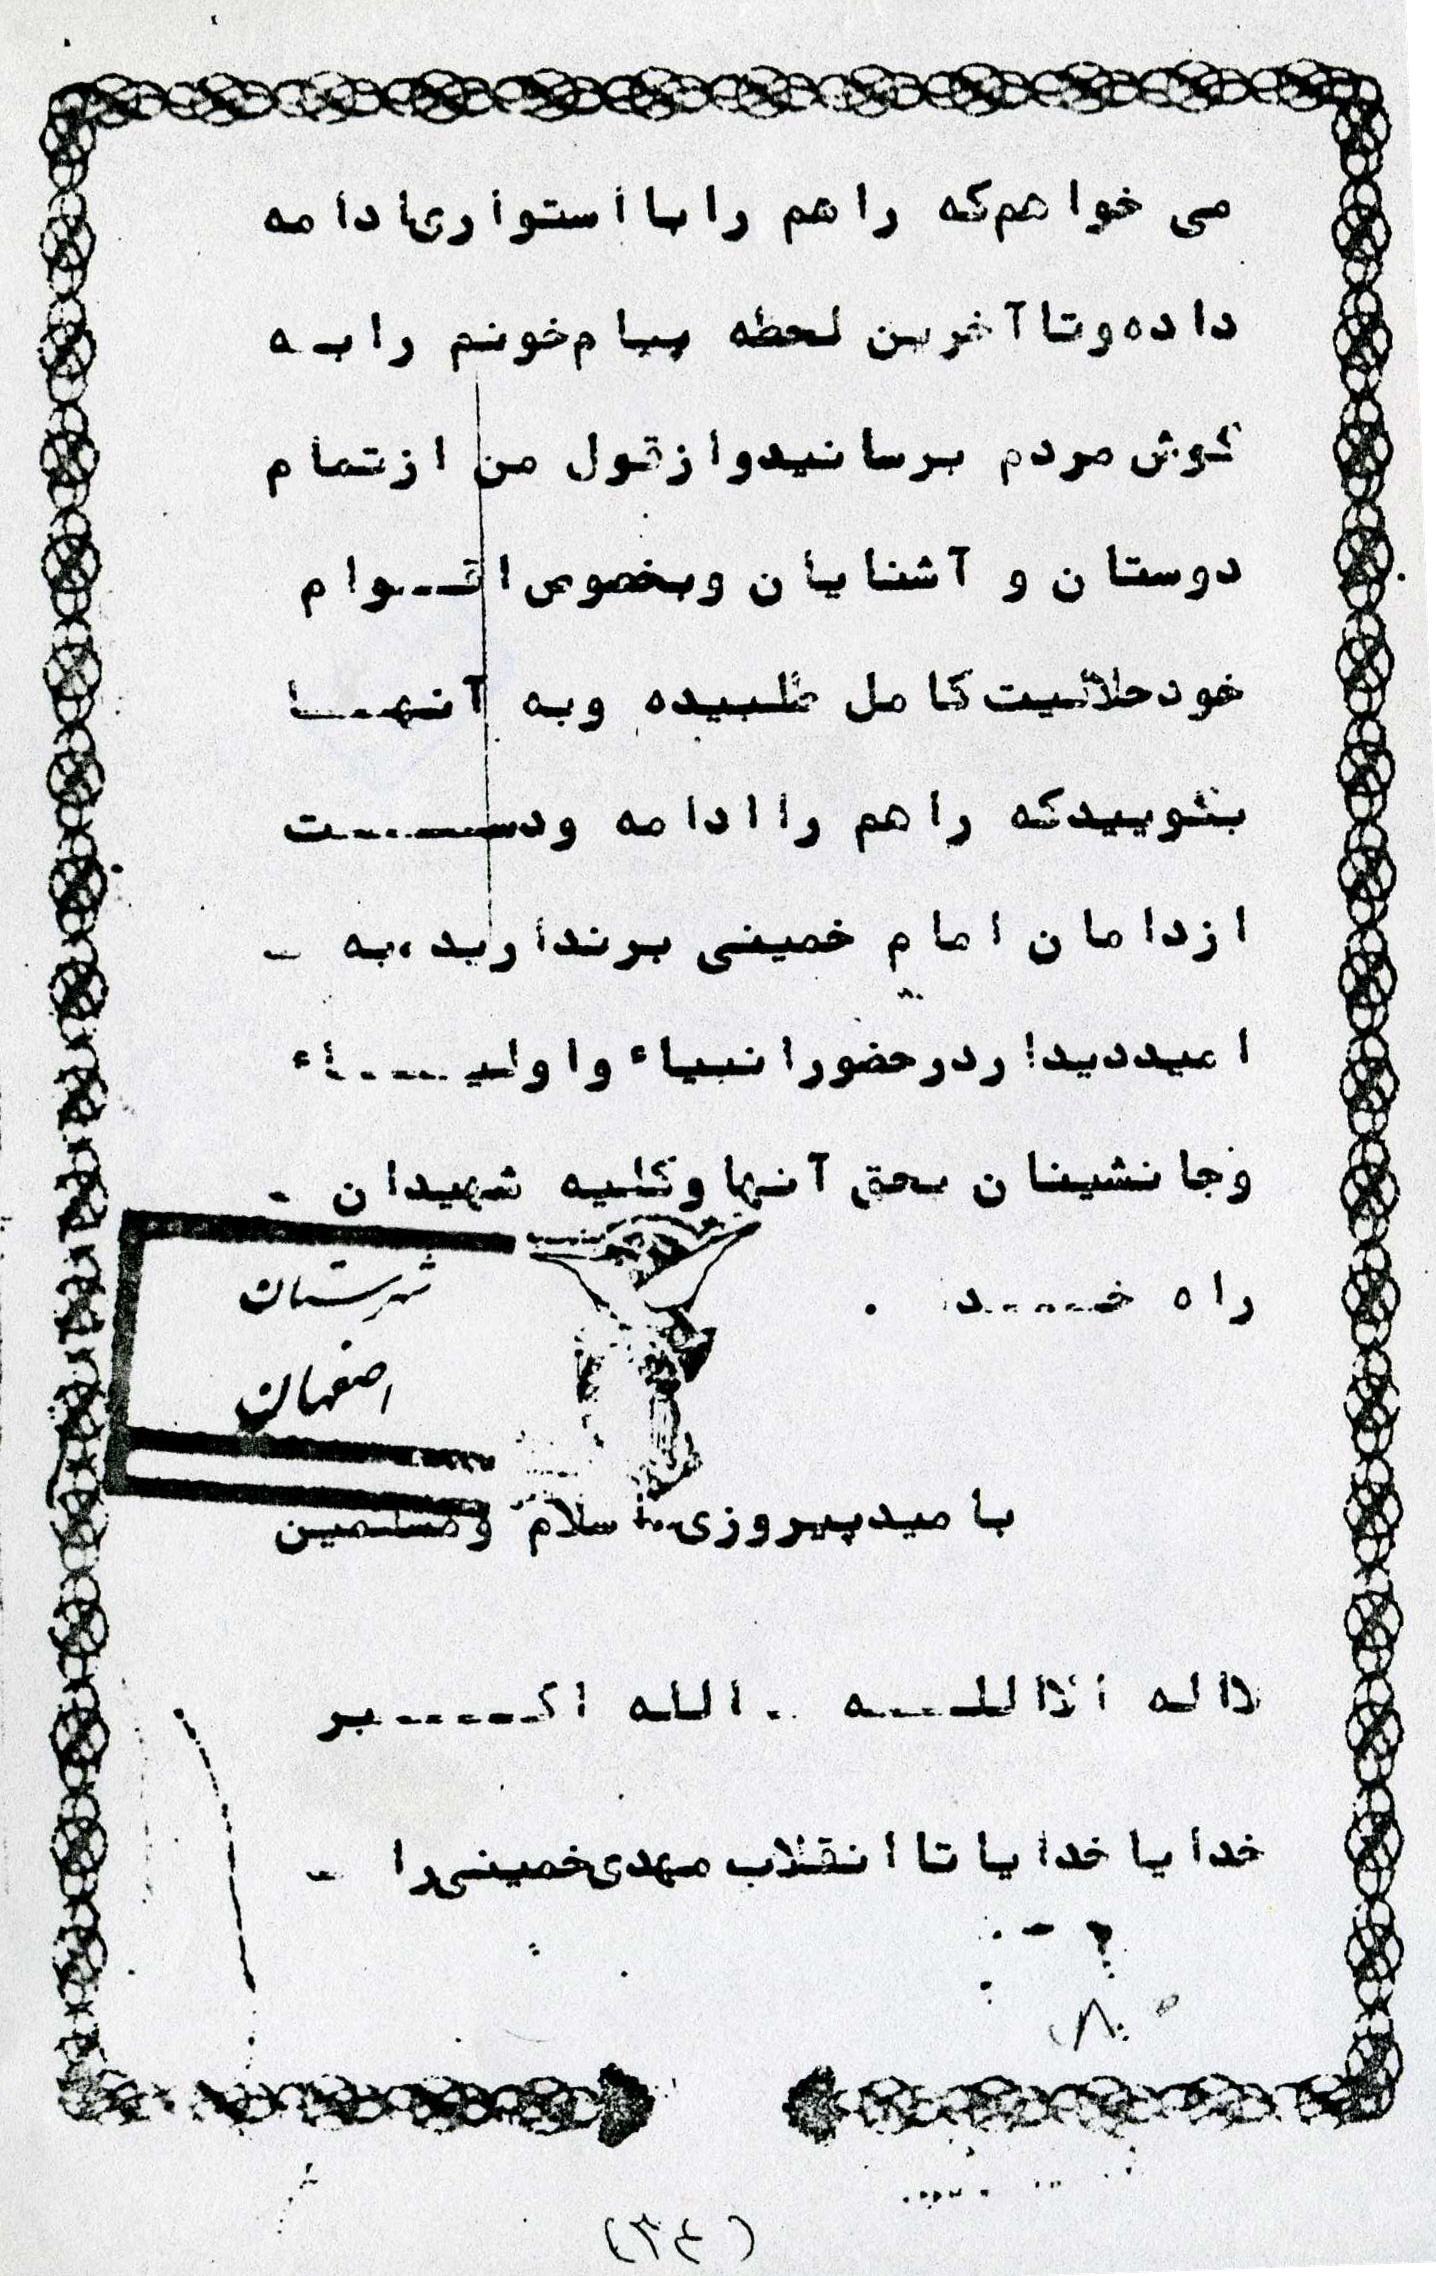 می خواهم که راهم را با استواری ادامه
داده و تا آخرین لحظه پیام خونم را به
گوش مردم برسانید و از قول من از تمام
دوستان و آشنایان و بخصوص اقوام
خود حلالیت کامل طلبیده و به آنها
بگویید که راهم را ادامه و دست
از دامان امام خمینی برندارید، به -
امید دیدار در حضور انبیاء و اولیاء
و جانشینان بحق آنها و کلیه شهیدان -
راه خدا .
شهرستان
اصفهان
با مید پیروزی اسلام و مسلمین
لااله الاالله . الله اکبر
خدایا خدایا تا انقلاب مهدی خمینی را -